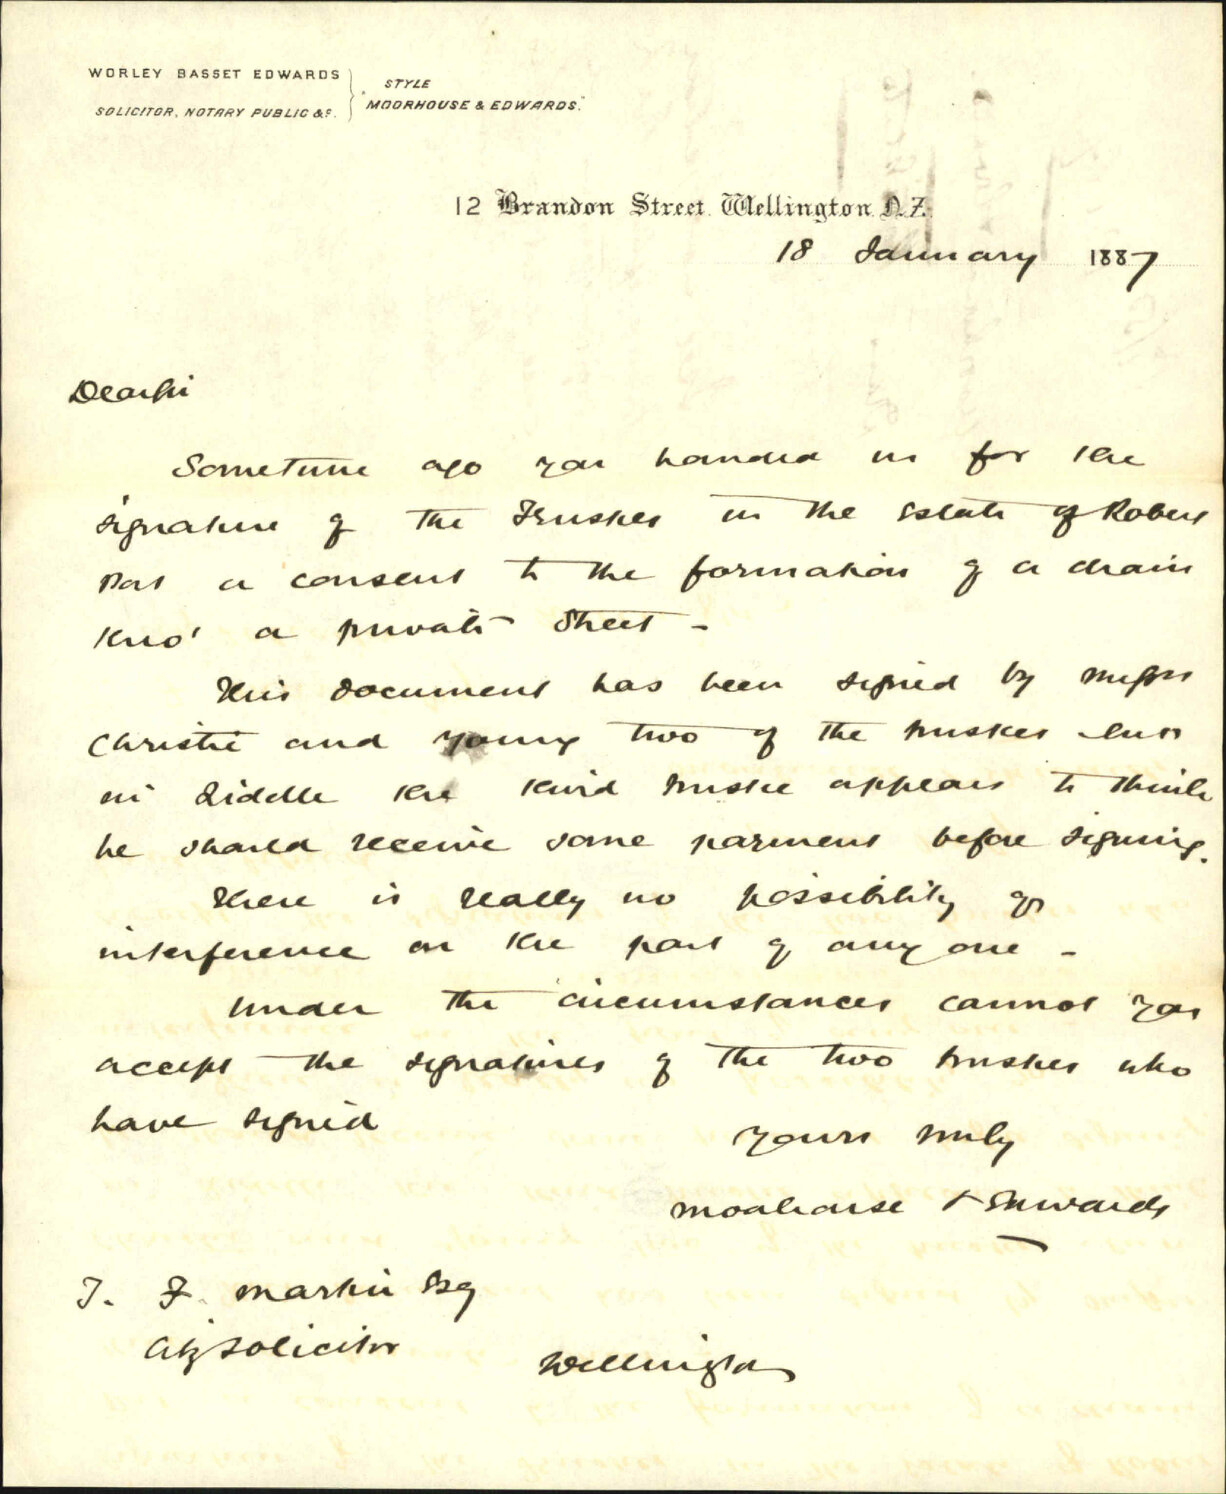 WORLEY BASSET EDWARDS
SOLICITOR, NOTARY PUBLIC &c.
STYLE
"MOORHOUSE & EDWARDS."
12 Brandon Street, Wellington N.Z.
18 January 1887
Dear Sir
Sometime ago you handed us for the
signature of the Trustees in the Estate of Robert
a consent to the formation of a drain
thro' a private street -
This document has been signed by Messrs
Christie and Young two of the trustees but
Mr Liddle the third trustee appears to think
he should receive some payment before signing.
There is really no possibility of
interference on the part of any one -
Under the circumstances cannot you
accept the signatures of the two trustees who
have signed
Yours truly
Moorhouse & Edwards
T. F. Martin Esq
City Solicitor
Wellington